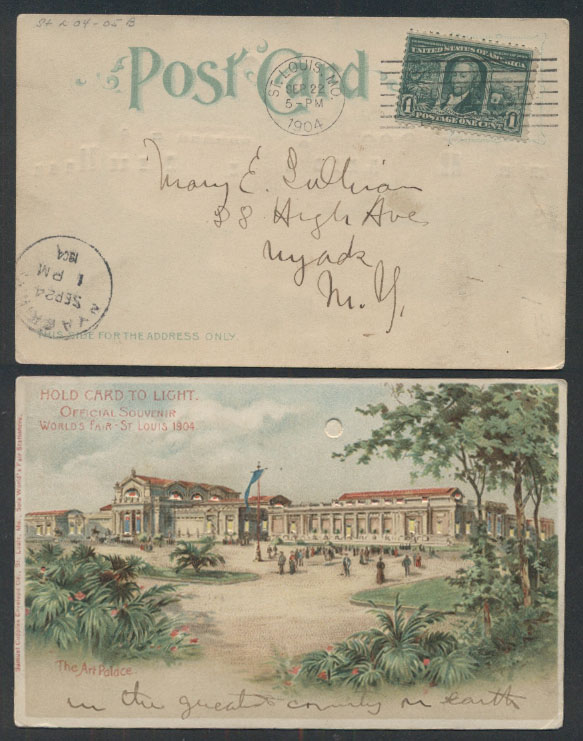 St L 04-05 B
Post Card
ST. LOUIS, MO.
SEP 22
5-PM
1904
UNITED STATES OF AMERICA
1 1
POSTAGE ONE CENT
Mary E. Sullivan
28 High Ave
Nyack
N. Y.
NYACK
SEP 24
1 PM
1904
THIS SIDE FOR THE ADDRESS ONLY.
HOLD CARD TO LIGHT.
OFFICIAL SOUVENIR
WORLDS FAIR - ST LOUIS 1904.
Samuel Cupples Envelope Co., St. Louis, Mo. Sole World's Fair Stationers.
The Art Palace.
in the great country on earth